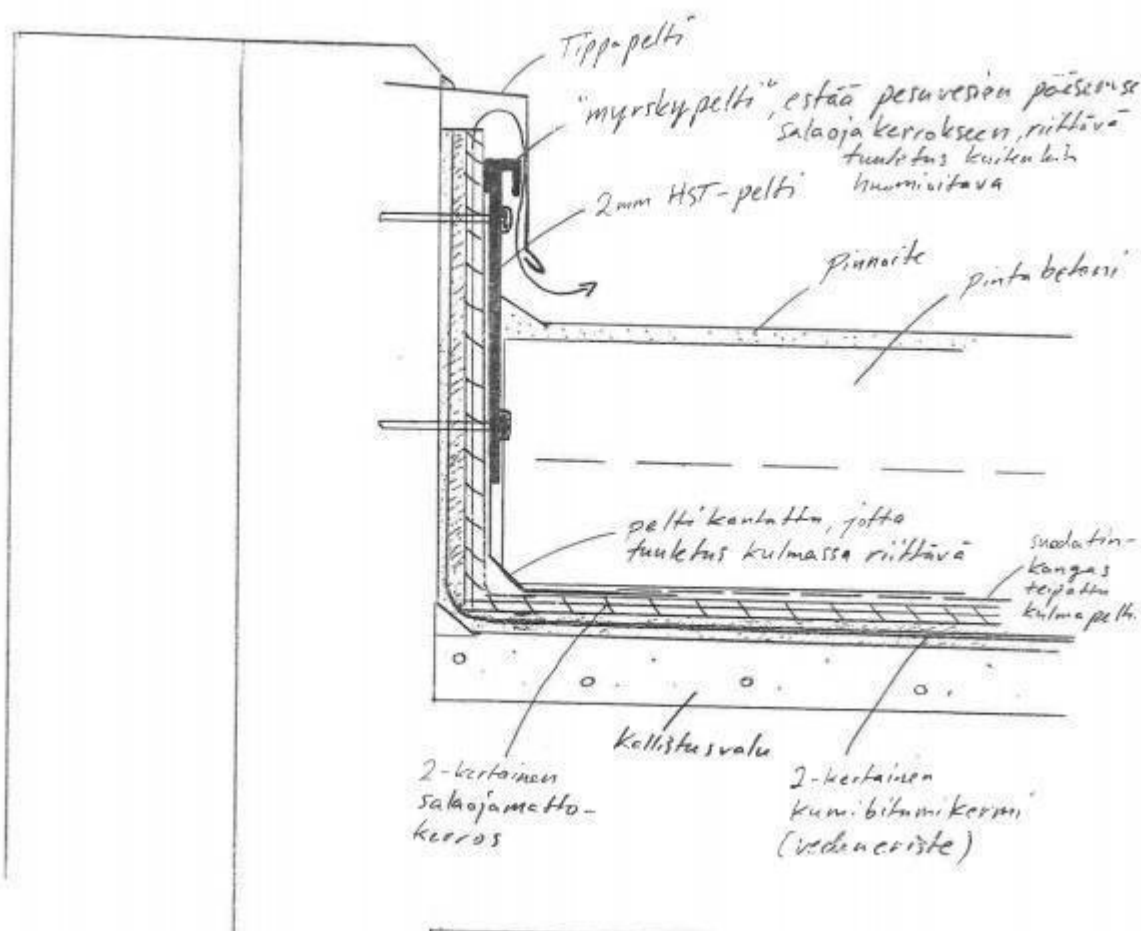 Tippapelti
"myrskypelti", estää pesuvesien pääsemise
salaojakerrokseen, riittävä
tuuletus kuitenkin
huomioitava
2mm HST-pelti
pinnoite
pintabetoni
pelti kantattu, jotta
tuuletus kulmassa riittävä
suodatin-
kangas
teipattu
kulmapelti.
Kallistusvalu
2-kertainen
salaojamatto-
kerros
2-kertainen
kumibitumikermi
(vedeneriste)